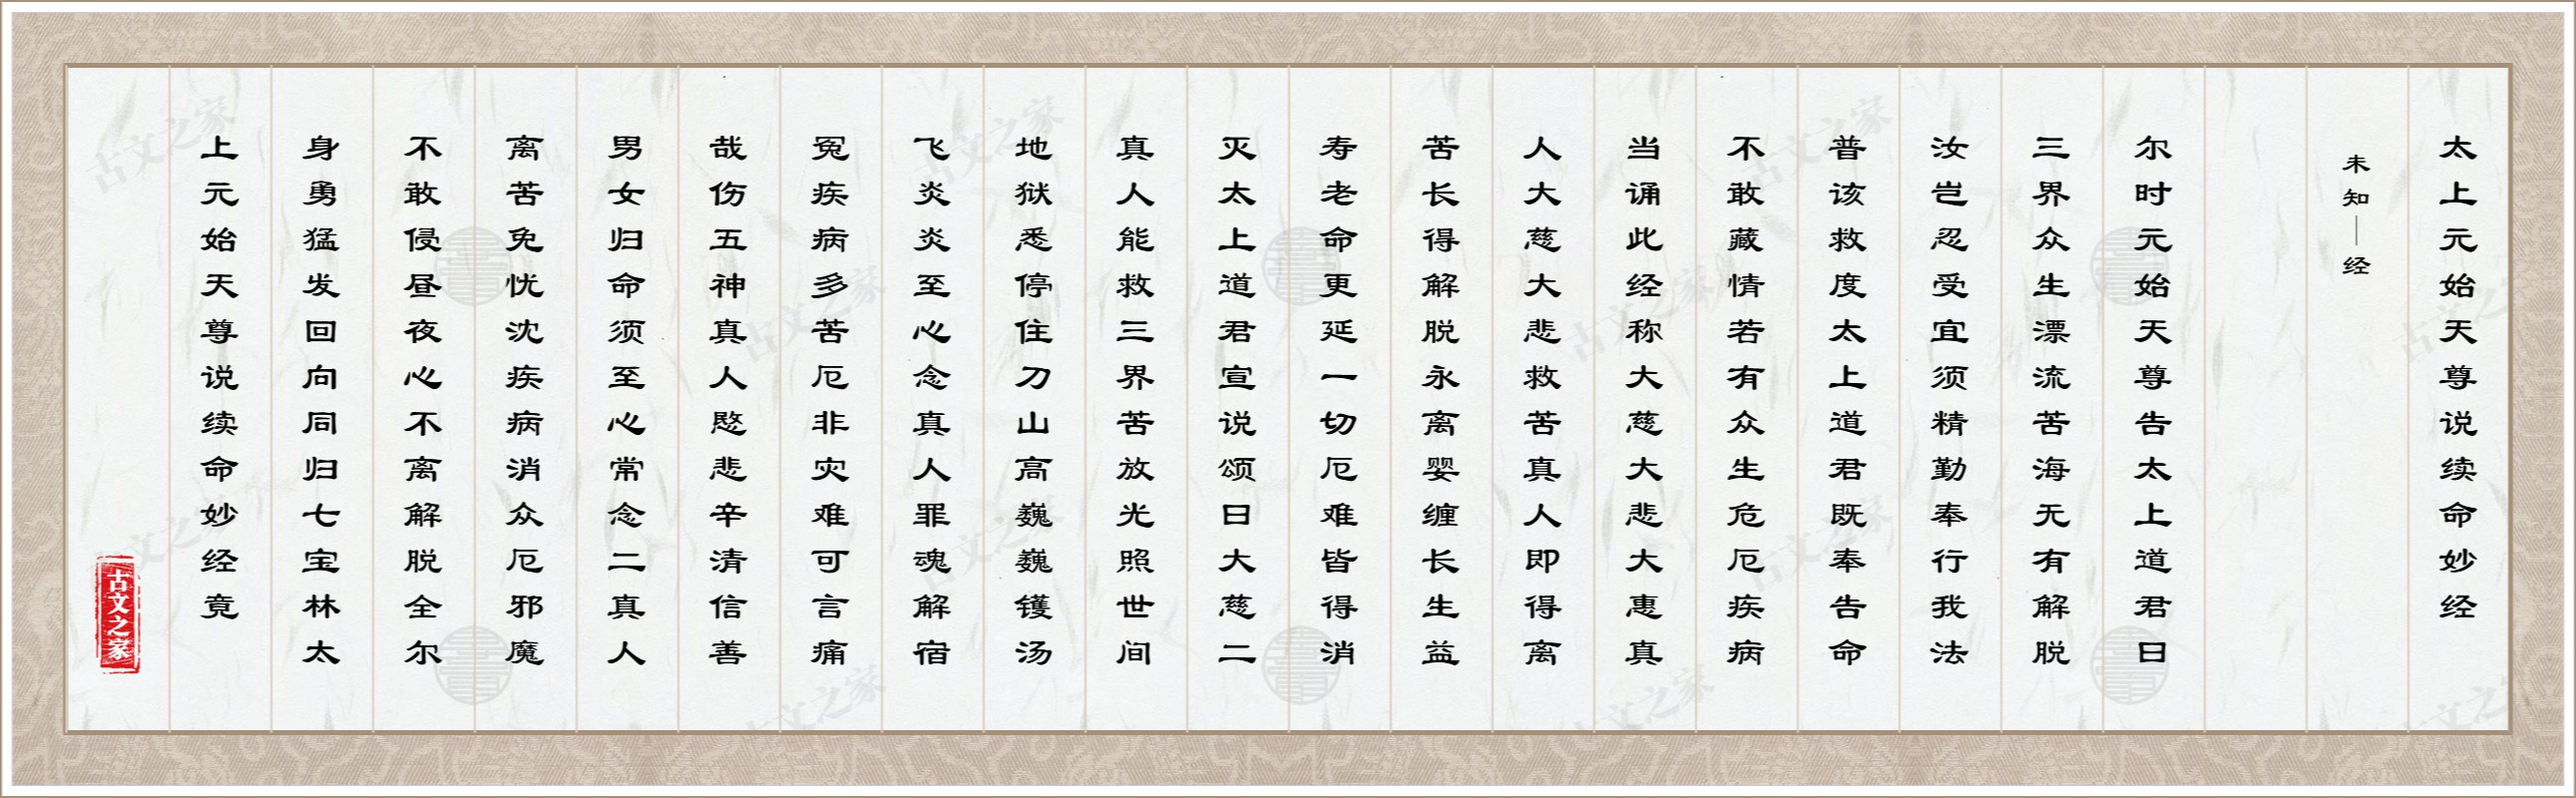 太上元始天尊说续命妙经
未知｜经
尔时元始天尊告太上道君曰
三界众生漂流苦海无有解脱
汝岂忍受宜须精勤奉行我法
普该救度太上道君既奉告命
不敢藏情若有众生危厄疾病
当诵此经称大慈大悲大惠真
人大慈大悲救苦真人即得离
苦长得解脱永离婴缠长生益
寿老命更延一切厄难皆得消
灭太上道君宣说颂曰大慈二
真人能救三界苦放光照世间
地狱悉停住刀山高巍巍镬汤
飞炎炎至心念真人罪魂解宿
冤疾病多苦厄非灾难可言痛
哉伤五神真人愍悲辛清信善
男女归命须至心常念二真人
离苦免忧沈疾病消众厄邪魔
不敢侵昼夜心不离解脱全尔
身勇猛发回向同归七宝林太
上元始天尊说续命妙经竟
古文之家